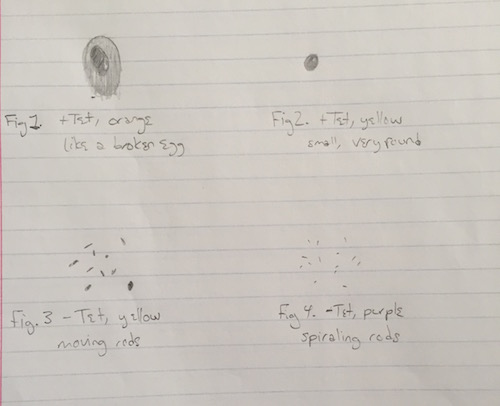 Fig 1. +Tet, orange
like a broken egg
Fig 2. +Tet, yellow
small, very round
Fig. 3 -Tet, yellow
moving rods
Fig 4. -Tet, purple
spiraling rods